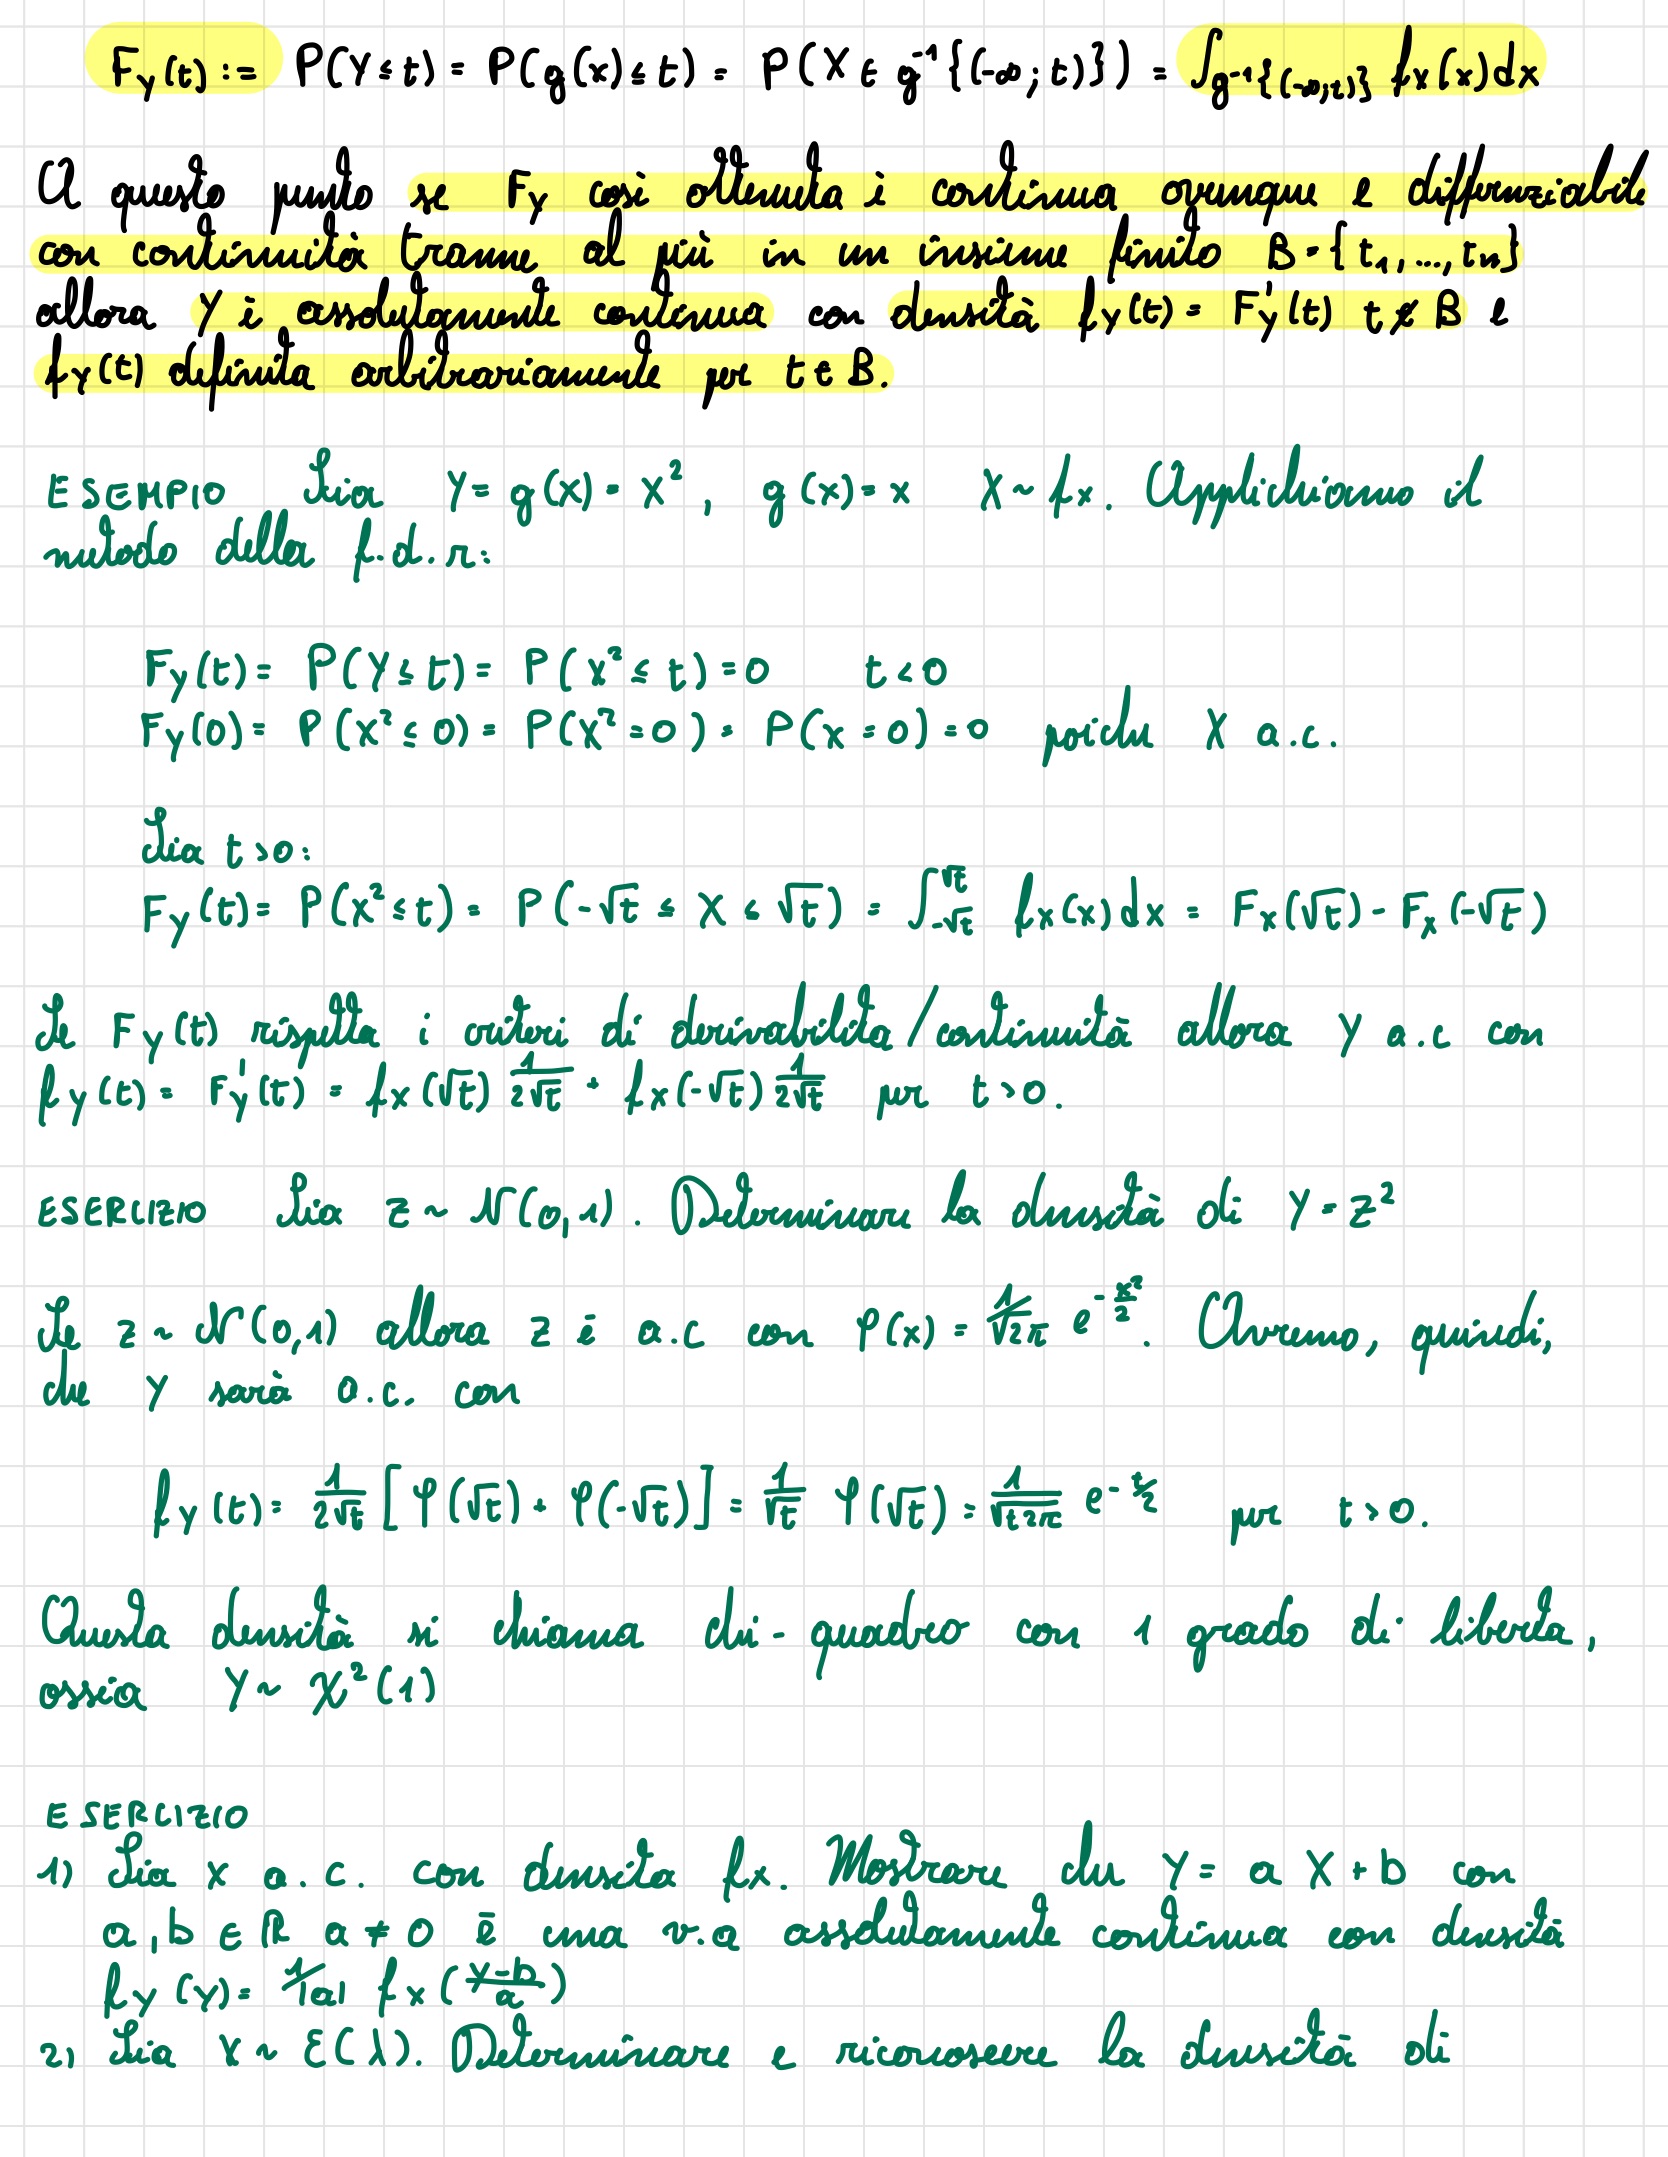 F_Y(t) := P(Y ≤ t) = P(g(x) ≤ t) = P(X ∈ g⁻¹{(-∞; t)}) = ∫_{g⁻¹{(-∞;t)}} f_X(x)dx
A questo punto se F_Y così ottenuta è continua ovunque e differenziabile
con continuità tranne al più in un insieme finito B = {t₁, ..., tₙ}
allora Y è assolutamente continua con densità f_Y(t) = F'_Y(t) t ∉ B e
f_Y(t) definita arbitrariamente per t ∈ B.
ESEMPIO Sia Y = g(x) = X², g(x) = x X ~ f_X. Applichiamo il
metodo della f.d.r:
F_Y(t) = P(Y ≤ t) = P(X² ≤ t) = 0 t < 0
F_Y(0) = P(X² ≤ 0) = P(X² = 0) = P(x = 0) = 0 poiché X a.c.
Sia t > 0:
F_Y(t) = P(X² ≤ t) = P(-√t ≤ X ≤ √t) = ∫_{-√t}^{√t} f_X(x)dx = F_X(√t) - F_X(-√t)
Se F_Y(t) rispetta i criteri di derivabilità/continuità allora Y a.c con
f_Y(t) = F'_Y(t) = f_X(√t) 1/(2√t) + f_X(-√t) 1/(2√t) per t > 0.
ESERCIZIO Sia Z ~ N(0,1). Determinare la densità di Y = Z²
Se Z ~ N(0,1) allora Z è a.c con φ(x) = 1/√(2π) e^(-x²/2). Avremo, quindi,
che Y sarà a.c. con
f_Y(t) = 1/(2√t) [φ(√t) + φ(-√t)] = 1/√t φ(√t) = 1/√(t2π) e^(-t/2) per t > 0.
Questa densità si chiama chi-quadro con 1 grado di libertà,
ossia Y ~ χ²(1)
ESERCIZIO
1) Sia X a.c. con densità f_X. Mostrare che Y = a X + b con
a, b ∈ ℝ a ≠ 0 è una v.a assolutamente continua con densità
f_Y(y) = 1/|a| f_X((y-b)/a)
2) Sia X ~ Ɛ(λ). Determinare e riconoscere la densità di